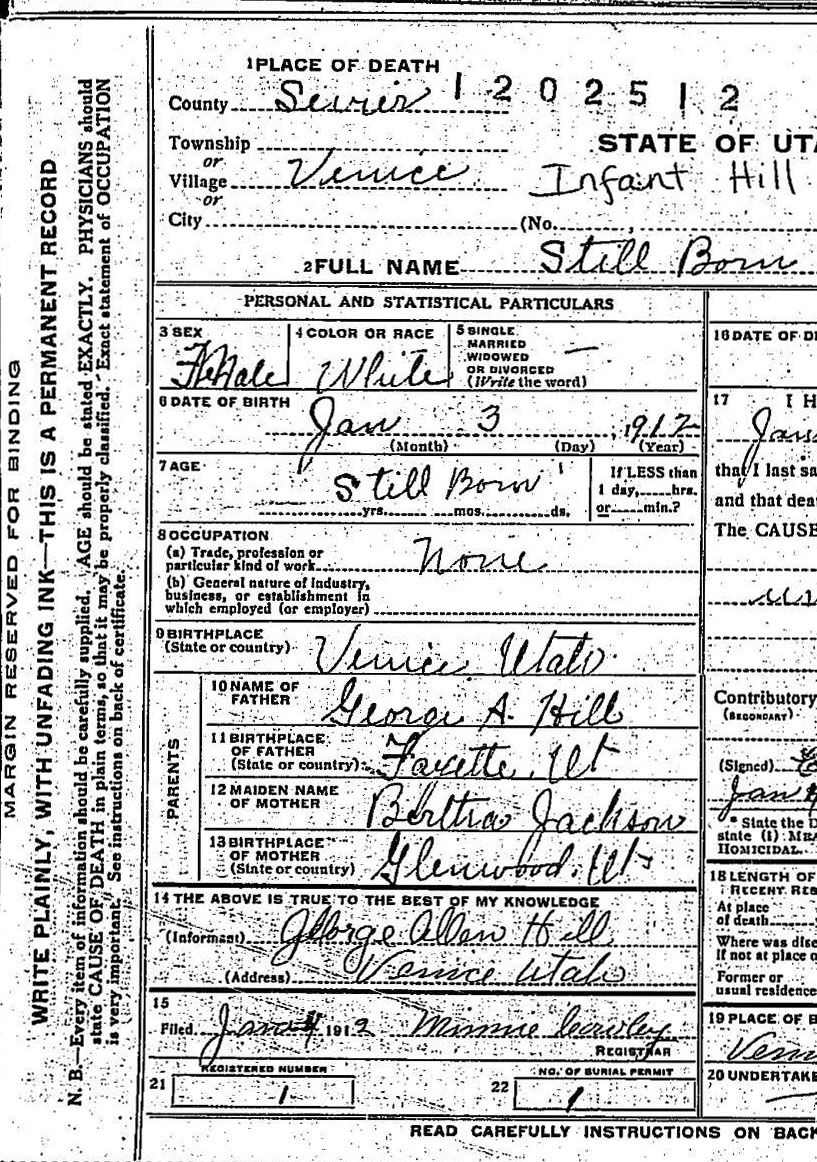 MARGIN RESERVED FOR BINDING
WRITE PLAINLY, WITH UNFADING INK—THIS IS A PERMANENT RECORD
N. B.—Every item of information should be carefully supplied. AGE should be stated EXACTLY. PHYSICIANS should
state CAUSE OF DEATH in plain terms, so that it may be properly classified. Exact statement of OCCUPATION
is very important. See instructions on back of certificate.
1 PLACE OF DEATH
County Sevier 1202512
Township
STATE OF UTA
or
Village Venice Infant Hill
or
City (No.
2 FULL NAME Still Born
PERSONAL AND STATISTICAL PARTICULARS
3 SEX 4 COLOR OR RACE 5 SINGLE
MARRIED
WIDOWED
OR DIVORCED
(Write the word)
Female White —
6 DATE OF BIRTH
Jan 3, 1912
(Month) (Day) (Year)
7 AGE
"Still Born"
yrs. mos. ds.
If LESS than
1 day, hrs.
or min.?
8 OCCUPATION
(a) Trade, profession or
particular kind of work None
(b) General nature of industry,
business, or establishment in
which employed (or employer)
9 BIRTHPLACE
(State or country) Venice, Utah.
PARENTS
10 NAME OF
FATHER George A. Hill
11 BIRTHPLACE
OF FATHER
(State or country) Fayette, Ut
12 MAIDEN NAME
OF MOTHER Bertha Jackson
13 BIRTHPLACE
OF MOTHER
(State or country) Glenwood. Ut
14 THE ABOVE IS TRUE TO THE BEST OF MY KNOWLEDGE
(Informant) George Allen Hill
(Address) Venice Utah
15
Filed Jan 4 1912 Minnie Cowley
REGISTRAR
REGISTERED NUMBER
21 1
NO. OF BURIAL PERMIT
22 1
16 DATE OF DE
17 I H
Jan
that I last sa
and that dea
The CAUSE
Contributory
(SECONDARY)
(Signed)
Jan 4
* State the D
state (1) MEA
HOMICIDAL.
18 LENGTH OF
RECENT RES
At place
of death
Where was dise
If not at place o
Former or
usual residence
19 PLACE OF B
Veni
20 UNDERTAKE
READ CAREFULLY INSTRUCTIONS ON BACK